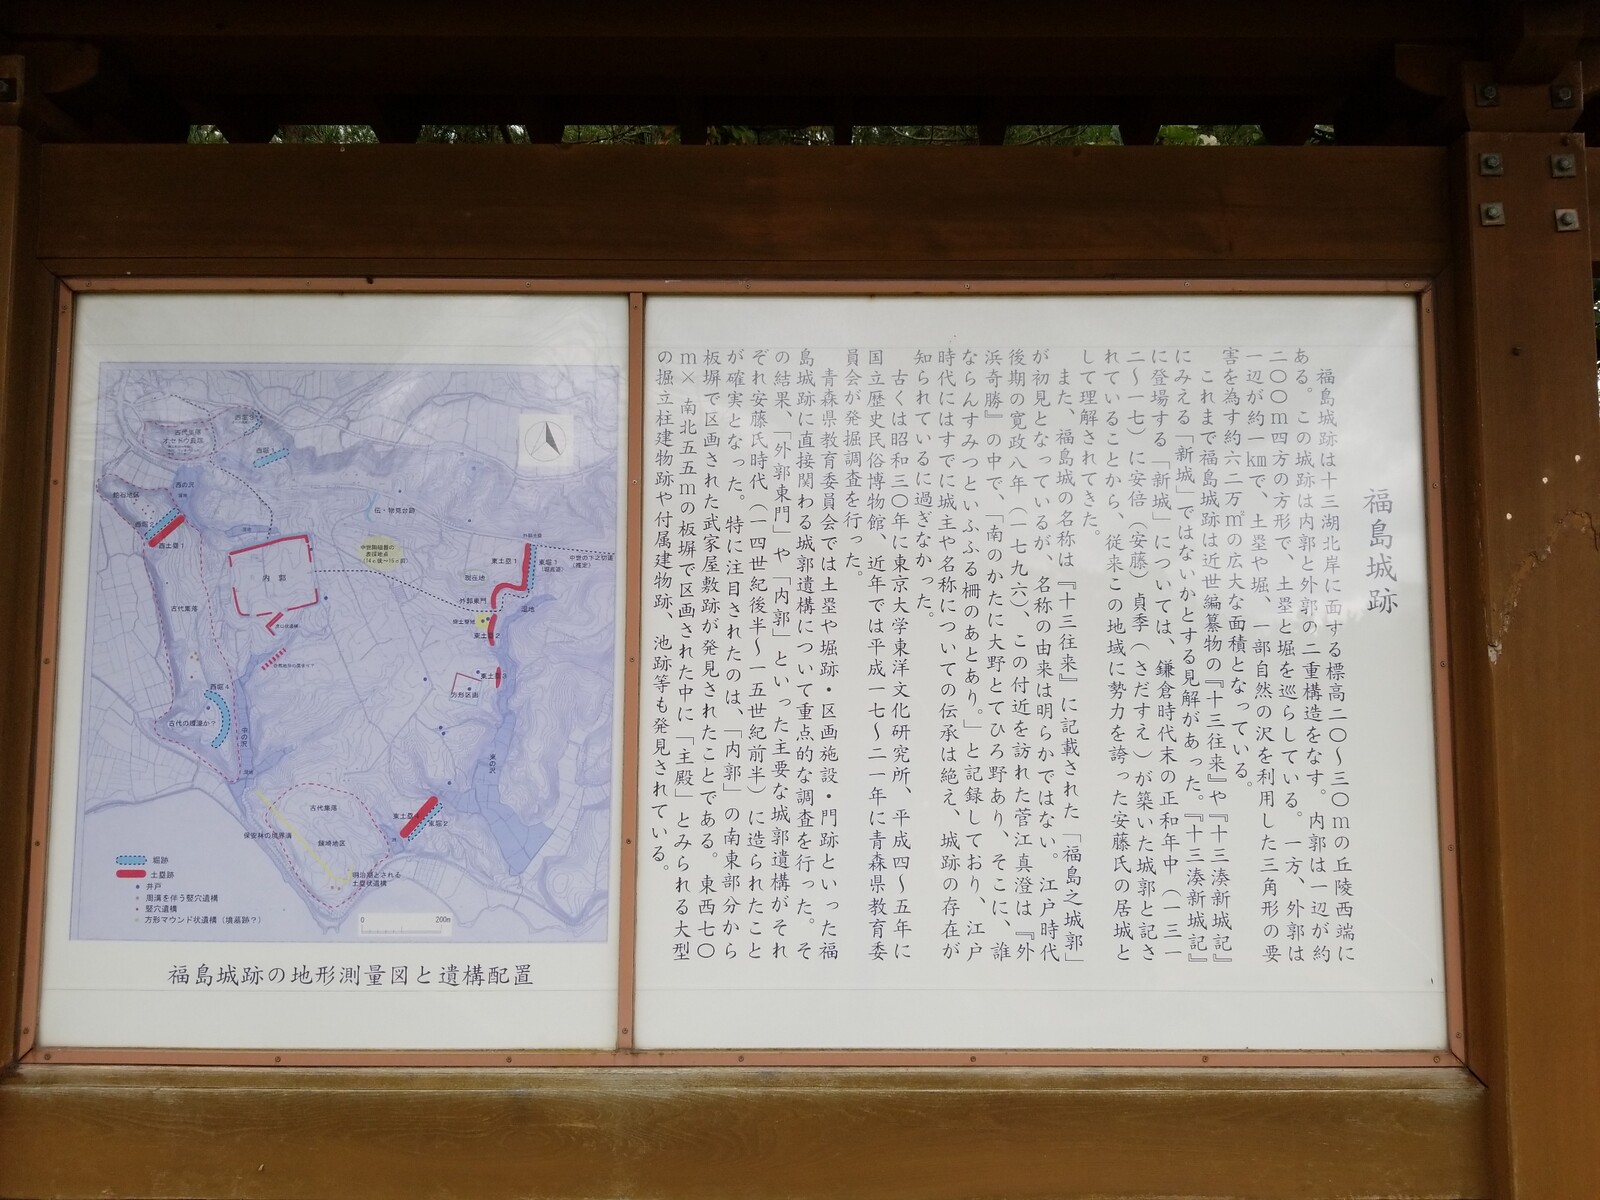 福島城跡
福島城跡は十三湖北岸に面する標高二〇〜三〇ｍの丘陵西端に
ある。この城跡は内郭と外郭の二重構造をなす。内郭は一辺が約
二〇〇ｍ四方の方形で、土塁と堀を巡らしている。一方、外郭は
一辺が約一㎞で、土塁や堀、一部自然の沢を利用した三角形の要
害を為す約六二万㎡の広大な面積となっている。
これまで福島城跡は近世編纂物の『十三往来』や『十三湊新城記』
にみえる「新城」ではないかとする見解があった。『十三湊新城記』
に登場する「新城」については、鎌倉時代末の正和年中（一三一
二〜一七）に安倍（安藤）貞季（さだすえ）が築いた城郭と記さ
れていることから、従来この地域に勢力を誇った安藤氏の居城と
して理解されてきた。
また、福島城の名称は『十三往来』に記載された「福島之城郭」
が初見となっているが、名称の由来は明らかではない。江戸時代
後期の寛政八年（一七九六）、この付近を訪れた菅江真澄は『外
浜奇勝』の中で、「南のかたに大野とてひろ野あり、そこに、誰
ならんすみつといふふる柵のあとあり。」と記録しており、江戸
時代にはすでに城主や名称についての伝承は絶え、城跡の存在が
知られているに過ぎなかった。
古くは昭和三〇年に東京大学東洋文化研究所、平成四〜五年に
国立歴史民俗博物館、近年では平成一七〜二一年に青森県教育委
員会が発掘調査を行った。
青森県教育委員会では土塁や堀跡・区画施設・門跡といった福
島城跡に直接関わる城郭遺構について重点的な調査を行った。そ
の結果、「外郭東門」や「内郭」といった主要な城郭遺構がそれ
ぞれ安藤氏時代（一四世紀後半〜一五世紀前半）に造られたこと
が確実となった。特に注目されたのは、「内郭」の南東部分から
板塀で区画された武家屋敷跡が発見されたことである。東西七〇
ｍ×南北五五ｍの板塀で区画された中に「主殿」とみられる大型
の掘立柱建物跡や付属建物跡、池跡等も発見されている。
古代集落
オセドウ貝塚
西堀1
西の沢
湿地
西堀2
西土塁1
内郭
古代集落
伝・物見台跡
中世陶磁器の
表採地点
東土塁1
東堀1
中世の下之切道
(推定)
現在地
外郭東門
湿地
東土塁2
東土塁3
方形区画
西堀4
古代の環濠か?
中の沢
東の沢
古代集落
東土塁4
東堀2
保安林の境界溝
鰊崎地区
明治期とされる
土塁状遺構
堀跡
土塁跡
井戸
周溝を伴う竪穴遺構
竪穴遺構
方形マウンド状遺構（墳墓跡？）
0 200m
福島城跡の地形測量図と遺構配置